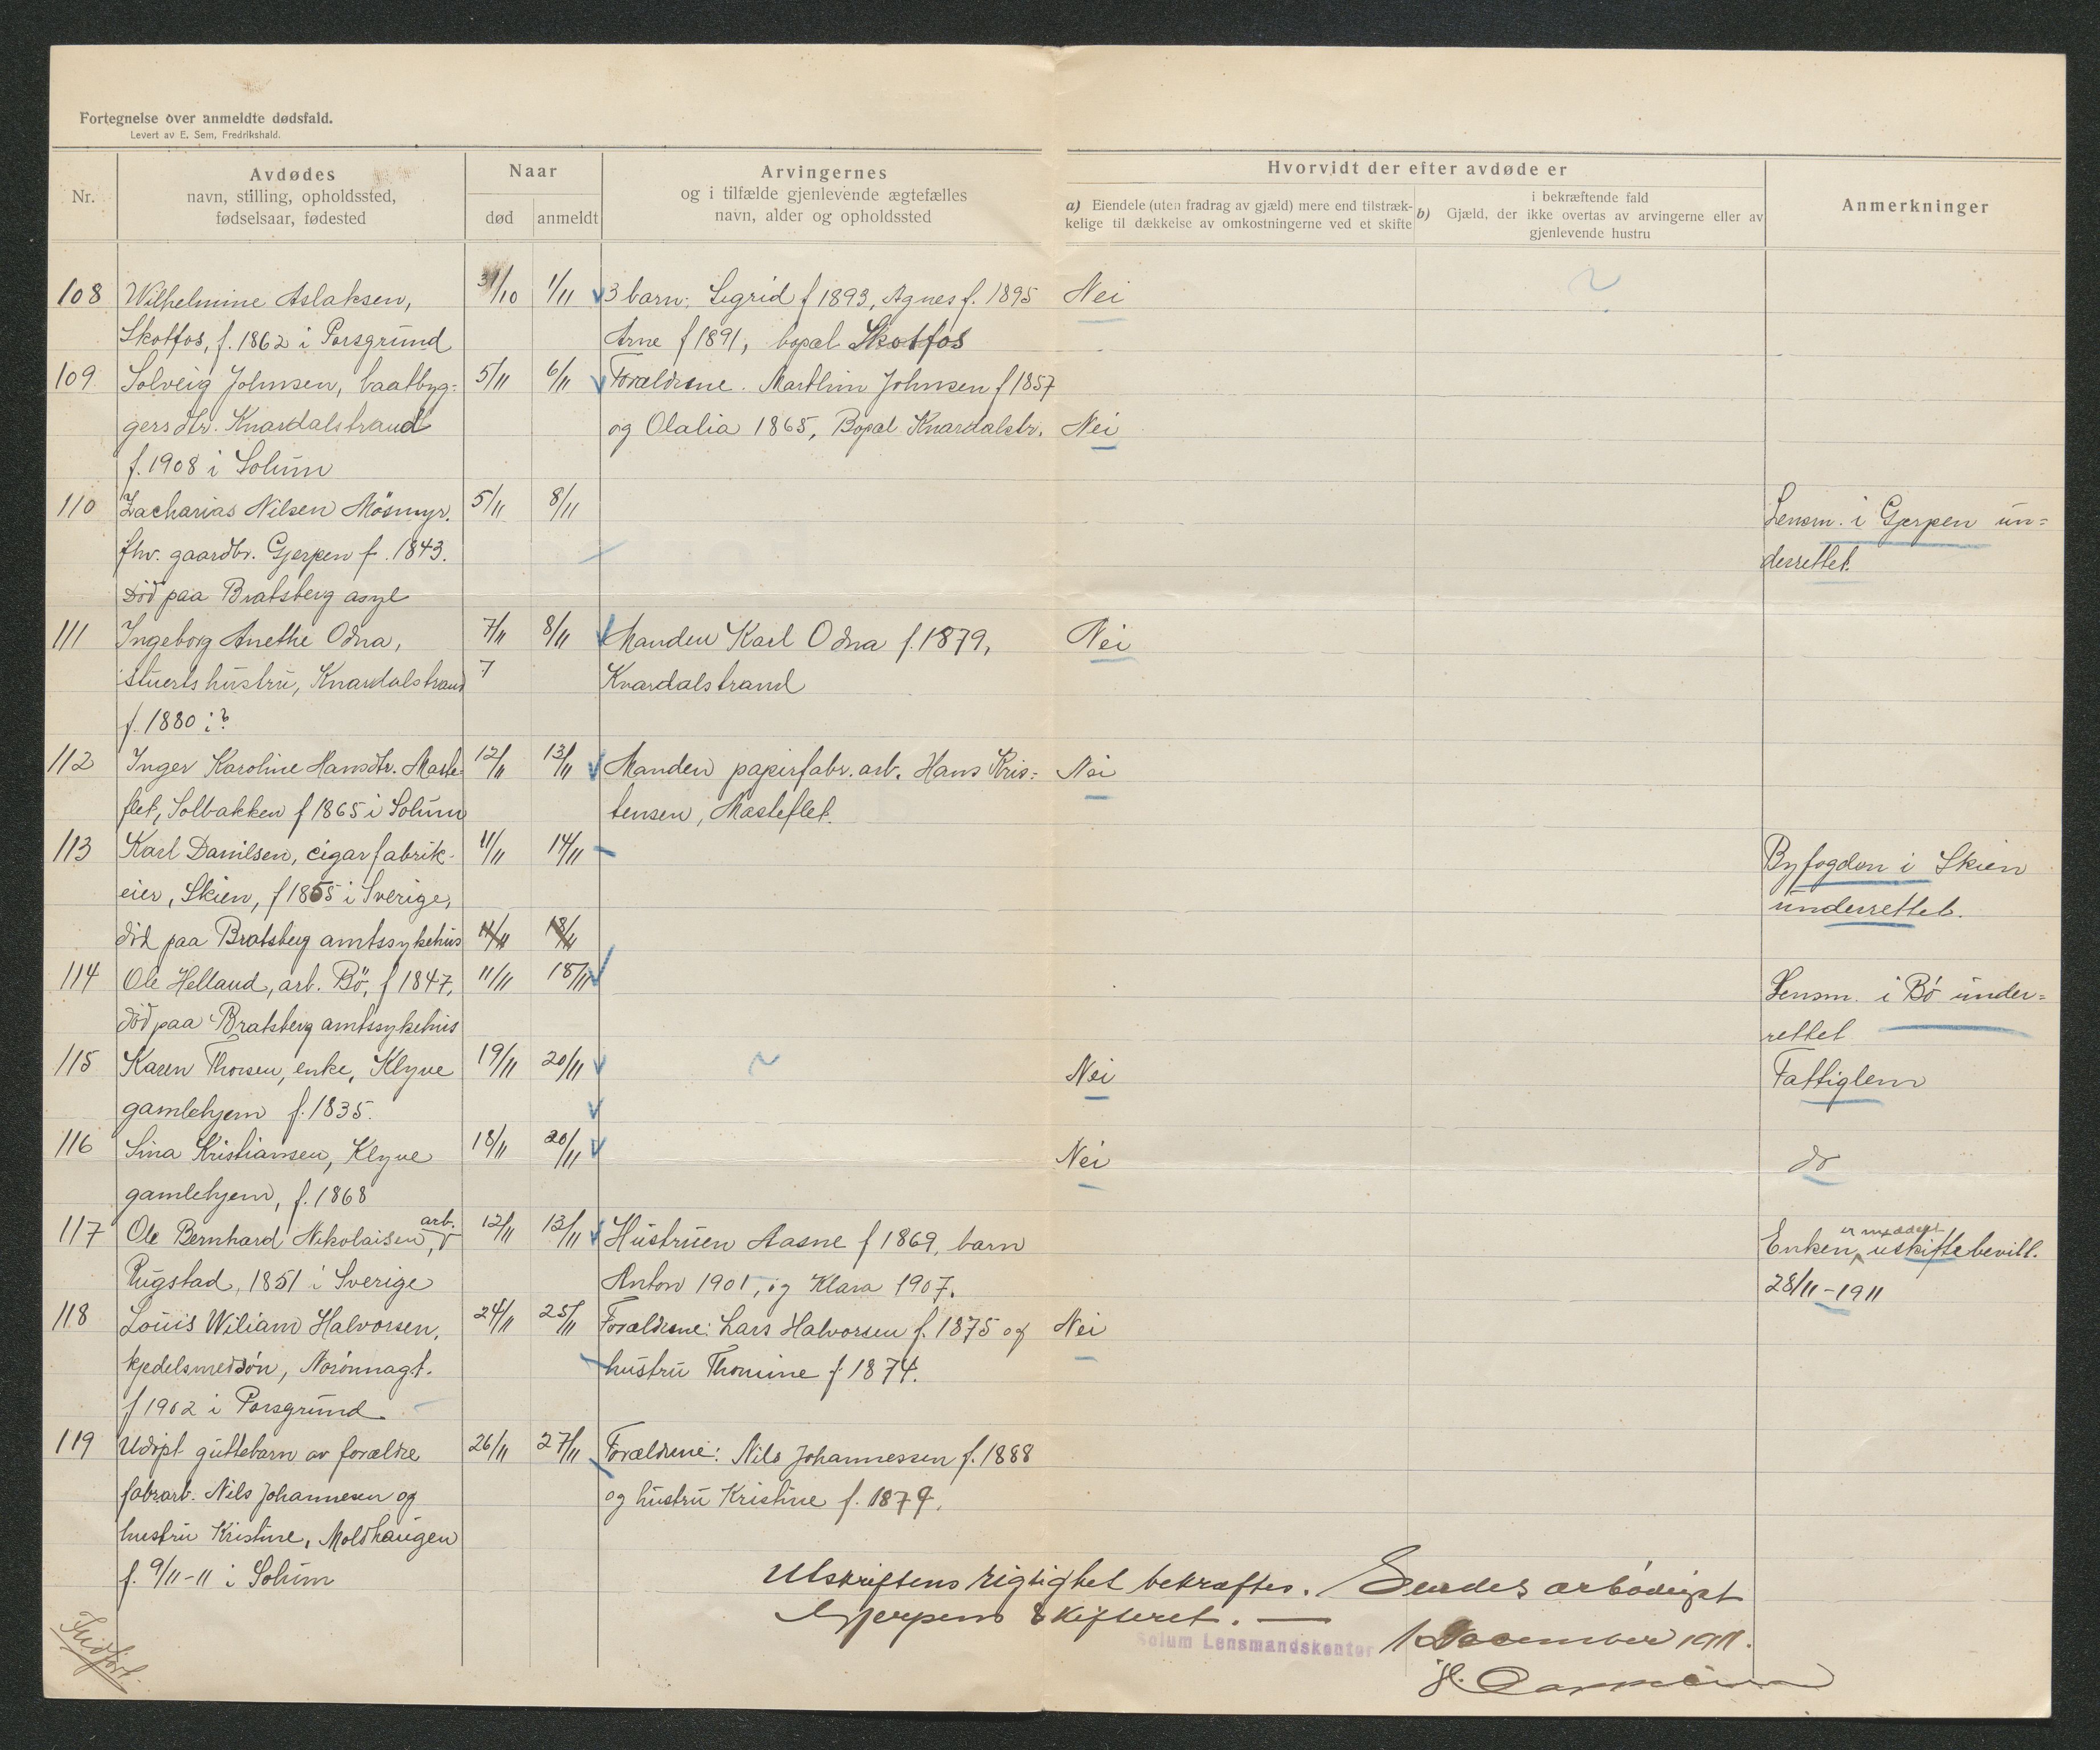 Fortegnelse over anmeldte dødsfald.
Levert av E. Sem, Fredrikshald.
Nr.
Avdødes
navn, stilling, opholdssted,
fødselsaar, fødested
Naar
død
anmeldt
Arvingernes
og i tilfælde gjenlevende ægtefælles
navn, alder og opholdssted
Hvorvidt der efter avdøde er
a) Eiendele (uten fradrag av gjæld) mere end tilstræk-
kelige til dækkelse av omkostningerne ved et skifte
b) Gjæld, der
i bekræftende fald
ikke overtas av arvingerne eller av
gjenlevende hustru
Anmerkninger
108 Wilhelmine Aslaksen, 31/10 1/11 3 barn: Sigrid f 1893, Agnes f. 1895 Nei
Skotfos, f. 1862 i Porsgrund Arne f 1891, bopæl Skotfos
109 Solveig Johnsen, baatbyg= 5/11 6/11 Forældrene. Marthin Johnsen f 1857
gersdtr. Knardalstrand og Olalia 1865, Bopæl Knardalstr. Nei
f. 1908 i Solum
110 Zacharias Nilsen Mösmyr. 5/11 8/11 Lensm. i Gjerpen un=
fhv. gaardbr. Gjerpen f. 1843. derrettet.
Död paa Bratsberg asyl
111 Ingeborg Anethe Odna, 7/11 8/11 Manden Karl Odna f. 1879, Nei
stuerts hustru, Knardalstrand 7 Knardalstrand
f. 1880 i?
112 Inger Karoline Hansdtr. Maste= 12/11 13/11 Manden papirfabr. arb. Hans Kris= Nei
flet, Solbakken f 1865 i Solum tensen, Masteflet.
113 Karl Danilsen, cigarfabrik- 11/11 14/11 Byfogden i Skien
eier, Skien, f 1855 i Sverige, underrettet.
död paa Bratsberg amtssykehus 11/11 18/11
114 Ole Helland, arb. Bö, f 1847, 11/11 18/11 Lensm. i Bö under=
död paa Bratsberg amtssykehus rettet
115 Karen Thorsen, enke, Klyve 19/11 20/11 Nei Fattiglem
gamlehjem f. 1835.
116 Sina Kristiansen, Klyve 18/11 20/11 Nei do
gamlehjem, f. 1868
117 Ole Bernhard Nikolaisen, arb. 12/11 13/11 Hustruen Aasne f 1869, barn Enken er meddelt uskiftebevill.
Rugstad, 1851 i Sverige Anton 1901, og Klara 1907. 28/11-1911
118 Louis Wiliam Halvorsen, 24/11 25/11 Forældrene: Lars Halvorsen f. 1875 og Nei
kjedelsmedsön, hustru Thomine f 1874.
f 1902 i Porsgrund
119 Udöpt guttebarn av forældre 26/11 27/11 Forældrene: Nils Johannessen f. 1888
fabrarb. Nils Johannesen og og hustru Kristine f. 1879.
hustru Kristine, Moldhaugen
f. 9/11-11 i Solum
Utskriftens rigtighet bekræftes. Sendes ærbödigst
Gjerpens Skifteret.
Solum Lensmandskontor 1 December 1911.
Indfört.